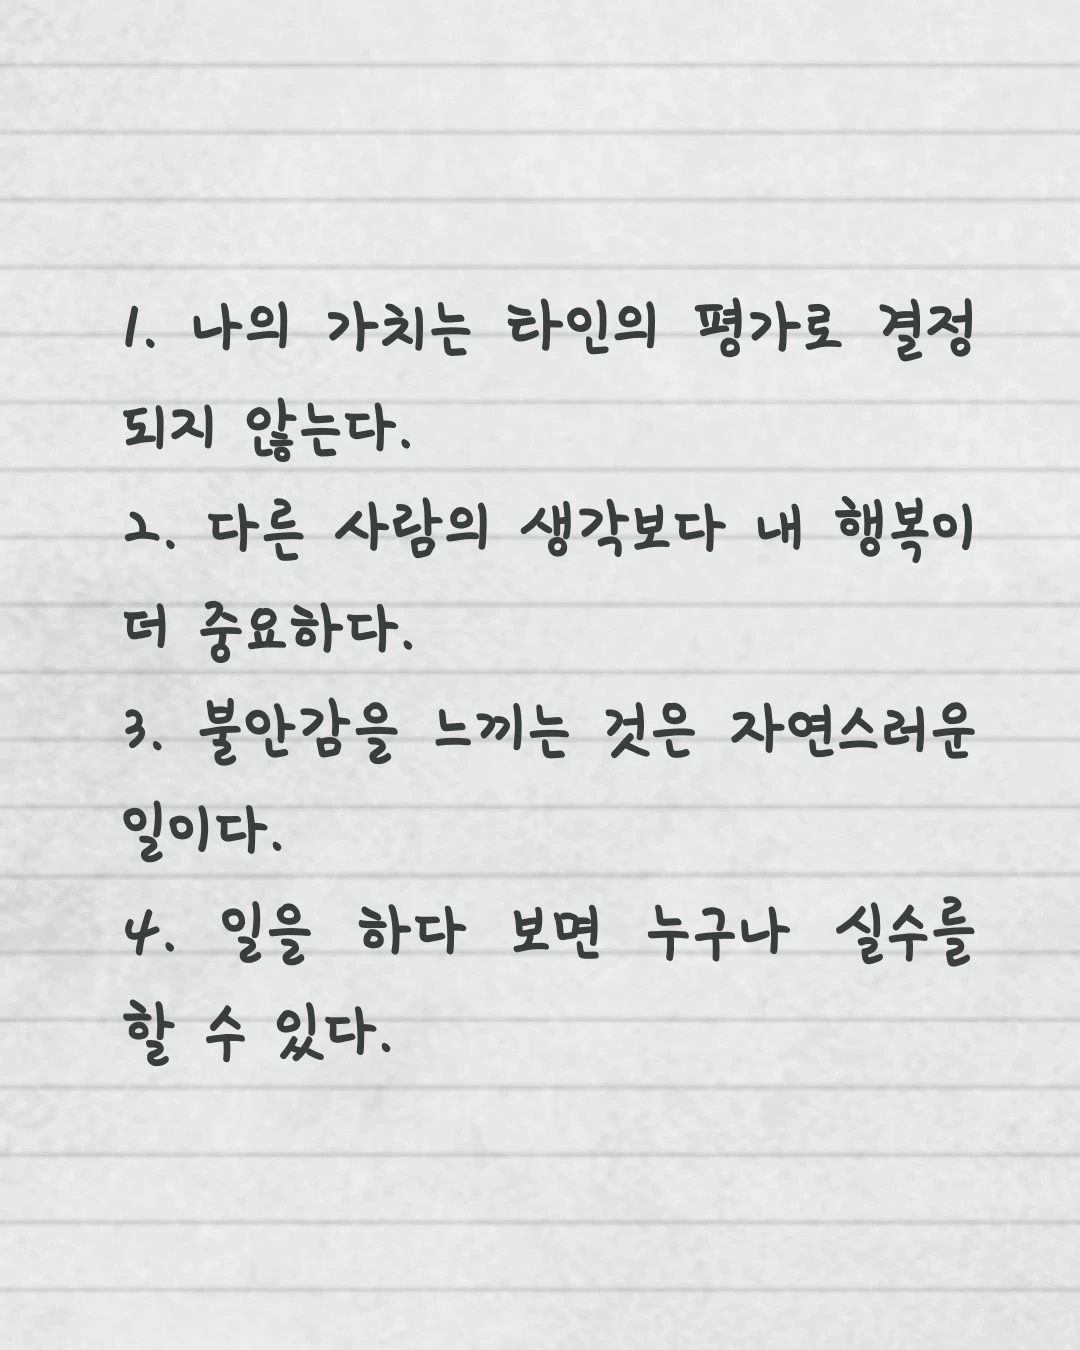 1. 나의 가치는 타인의 평가로 결정
되지 않는다.
2. 다른 사람의 생각보다 내 행복이
더 중요하다.
3. 불안감을 느끼는 것은 자연스러운
일이다.
4. 일을 하다 보면 누구나 실수를
할 수 있다.